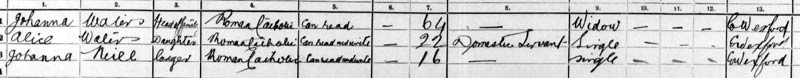 1. 2. 3. 4. 5. 6. 7. 8. 9. 10. 11. 12. 13.
Johanna Waters Head of Family Roman Catholic Can read — 64 — Widow — — — Co Wexford
Alice Waters Daughter Roman Catholic Can read and write — 22 Domestic Servant Single — — — Co Wexford
Johanna Neill Lodger Roman Catholic Can read and write — 16 — Single — — — Co Wexford